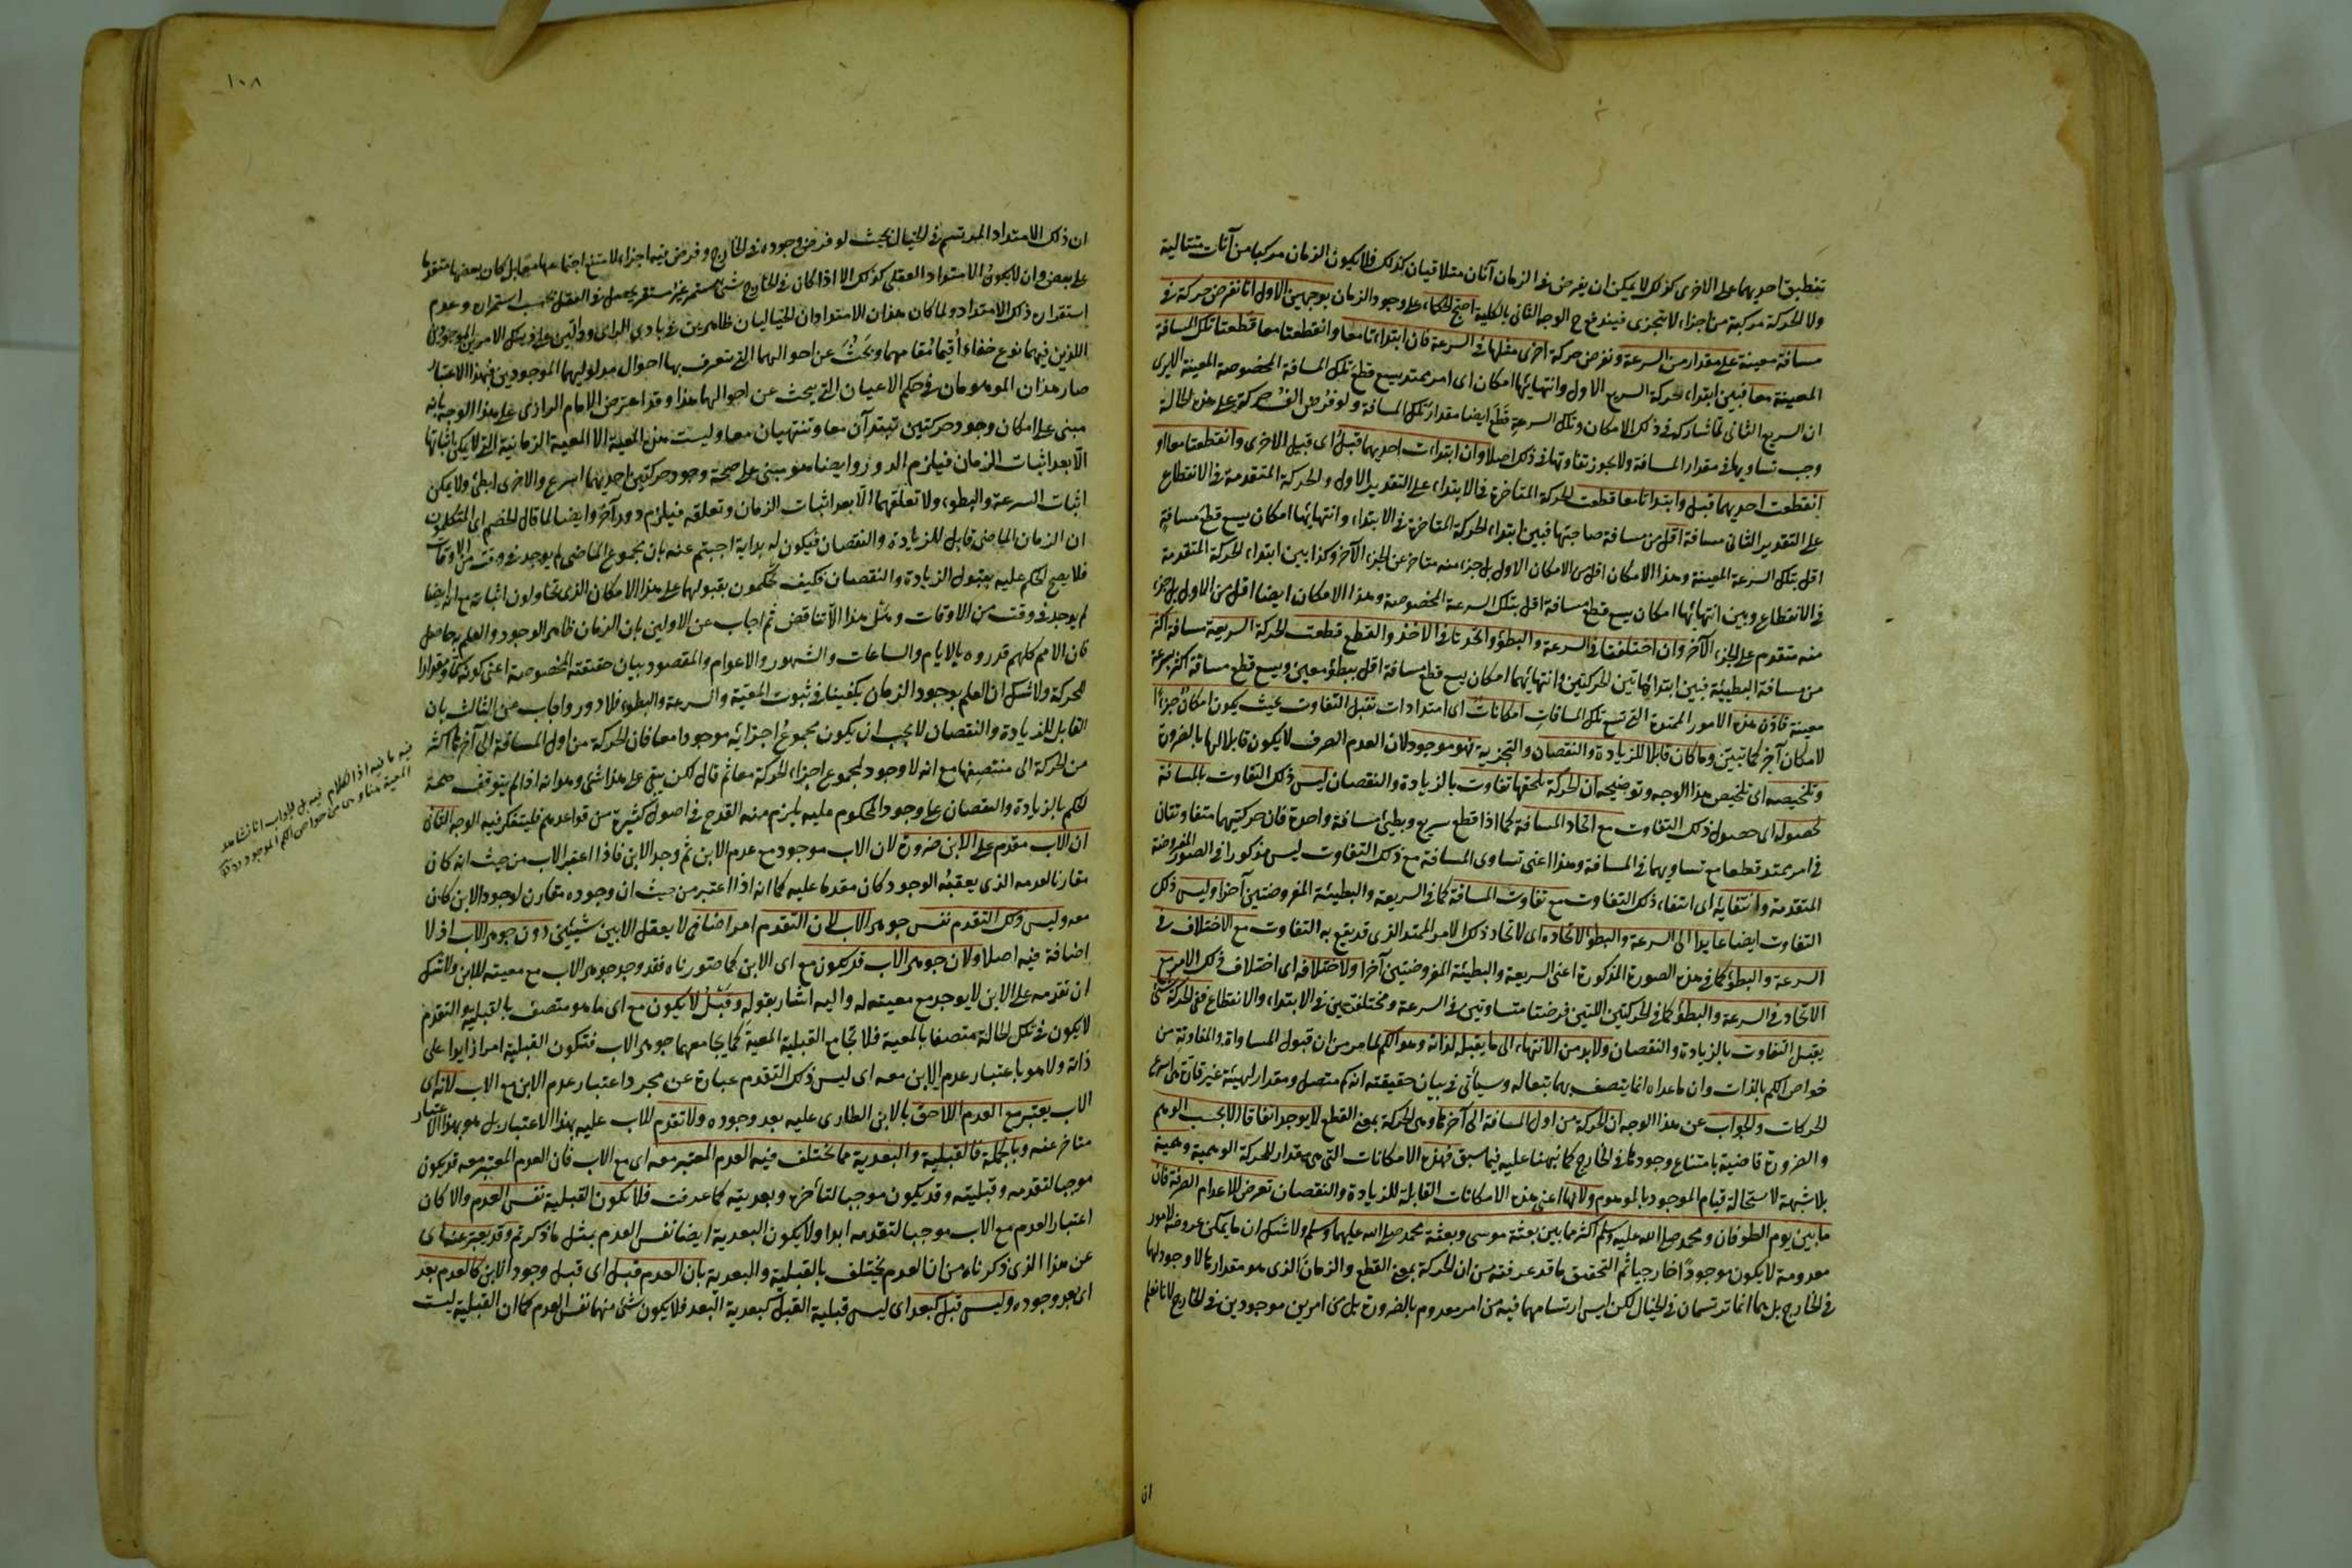 تنطبق احديهما على الاخرى كذلك لا يمكن ان يفرض فى الزمان آنان متلاقيان كذلك فلا يكون الزمان مركبا من آنات متتالية
ولا الحركة مركبة من اجزاء لا تتجزى فيندفع ح الوجه الثانى بالكلية احتج الحكماء على وجود الزمان بوجهين الاول انا نفرض حركة فى
مسافة معينة على مقدار من السرعة ونفرض حركة اخرى مثلها فى السرعة فان ابتدأتا معا وانقطعتا معا قطعتا تلك المسافة
المعينة معا فبين ابتداء حركة السريع الاول وانتهائها امكان اى امر يمتد يسع قطع تلك المسافة المخصوصة المعينة الا يرى
ان السريع الثانى لما شاركه فى ذلك الامكان وتلك السرعة قطع ايضا مقدار تلك المسافة ولو فرض الف حركة على هذه الحالة
وجب تساويها فى مقدار المسافة ولا يجوز تفاوتها فى ذلك اصلا وان ابتدأت احديهما قبل اى قبل الاخرى وانقطعتا معا او
انقطعت احديهما قبل وابتدأتا معا قطعت الحركة المتاخرة فى الابتداء على التقدير الاول والحركة المتقدمة فى الانقطاع
على التقدير الثانى مسافة اقل من مسافة صاحبتها فبين ابتداء الحركة المتاخرة فى الابتداء وانتهائها امكان يسع قطع مسافة
اقل بتلك السرعة المعينة وهذا الامكان اقل من الامكان الاول بل جزء منه متاخر عن الجزء الآخر وكذا بين ابتداء الحركة المتقدمة
فى الانقطاع وبين انتهائها امكان يسع قطع مسافة اقل بتلك السرعة المخصوصة وهذا الامكان ايضا اقل من الاول بل جزء
منه متقدم على الجزء الآخر وان اختلفتا فى السرعة والبطؤ واتحدتا فى الاخذ والقطع قطعت الحركة السريعة مسافة اكثر
من مسافة البطيئة فبين ابتدائى هاتين الحركتين وانتهائهما امكان يسع قطع مسافة اقل ببطؤ معين ويسع قطع مسافة اكثر بسرعة
معينة فاذن هذه الامور الممتدة التى تسع تلك المسافات امكانات اى امتدادات تقبل التفاوت بحيث يكون امكان جزءا
لامكان آخر كما تبين وما كان قابلا للزيادة والنقصان والتجزية فهو موجود لان العدم الصرف لا يكون قابلا لها بالضرورة
وتلخيصه اى تلخيص هذا الوجه وتوضيحه ان الحركة يلحقها تفاوت بالزيادة والنقصان ليس ذلك التفاوت بالمسافة
لحصوله اى حصول ذلك التفاوت مع اتحاد المسافة كما اذا قطع سريع وبطئ مسافة واحدة فان حركتيهما متفاوتتان
فى امر يمتد قطعا مع تساويهما فى المسافة وهذا اعنى تساوى المسافة مع ذلك التفاوت ليس مذكورا فى الصور المفروضة
المتقدمة وانتفائه اى انتفاء ذلك التفاوت مع تفاوت المسافة كما فى السريعة والبطيئة المفروضتين آخرا وليس ذلك
التفاوت ايضا عائدا الى السرعة والبطؤ لاتحاده اى لاتحاد ذلك الامر الممتد الذى قد يقع به التفاوت مع الاختلاف فى
السرعة والبطؤ كما فى هذه الصورة المذكورة اعنى السريعة والبطيئة المفروضتين آخرا ولاختلافه اى اختلاف ذلك الامر مع
الاتحاد فى السرعة والبطؤ كما فى الحركتين اللتين فرضتا متساويتين فى السرعة ومختلفتين فى الابتداء والانقطاع ففى الحركة شئ
يقبل التفاوت بالزيادة والنقصان ولا بد من الانتهاء الى ما يقبله لذاته وهو الكم لما مر من ان قبول المساواة والمفاوتة من
خواص الكم بالذات وان ما عداه انما يتصف بهما تبعا له وسيأتى فى بيان حقيقته انه كم متصل ومقدار لهيئة غير قارة هى اسرع
الحركات والجواب عن هذا الوجه ان الحركة من اول المسافة الى آخرها وهى الحركة بمعنى القطع لا يوجد اتفاقا الا بحسب الوهم
والضرورة قاضية بامتناع وجودها فى الخارج كما نبهنا عليه فيما سبق فهذه الامكانات التى هى مقدار للحركة الوهمية وهمية
بلا شبهة لاستحالة قيام الموجود بالموهوم ولانها اعنى هذه الامكانات القابلة للزيادة والنقصان تعرض للاعدام الصرفة فان
ما بين يوم الطوفان ومحمد صلى الله عليه وسلم اكثر مما بين بعثة موسى وبعثة محمد صلى الله عليهما وسلم ولا شك ان ما يمكن عروضه لامور
معدومة لا يكون موجودا خارجيا ثم التحقيق ما قد عرفته من ان الحركة بمعنى القطع والزمان الذى هو مقدارها لا وجود لهما
فى الخارج بل هما انما يرتسمان فى الخيال لكن ليس ارتسامهما فيه من امر معدوم بالضرورة بل من امرين موجودين فى الخارج لانا نعلم
ان
١٠٨
ان ذلك الامتداد المرتسم فى الخيال بحيث لو فرض وجوده فى الخارج وفرض فيه اجزاء لامتنع اجتماعها معا بل كان بعضها متقدما
على بعض وان لا يكون الامتداد العقلى كذلك الا اذا كان فى الخارج شئ مستمر غير مستقر يحصل فى العقل بحسب استمراره وعدم
استقراره ذلك الامتداد ولما كان هذان الامتدادان الخياليان ظاهرين فى بادى الراى ودالين على ذينك الامرين الموجودين
اللذين فيهما نوع خفاء اقيما مقامهما وبحث عن احوالهما التى يتعرف بها احوال مدلوليهما الموجودين فبهذا الاعتبار
صار هذان الموهومان فى حكم الاعيان التى يبحث عن احوالها هذا وقد اعترض الامام الرازى على هذا الوجه بانه
مبنى على امكان وجود حركتين تبتدآن معا وتنتهيان معا وليست هذه المعية الا المعية الزمانية التى لا يمكن اثباتها
الا بعد اثبات الزمان فيلزم الدور وايضا هو مبنى على صحة وجود حركتين احديهما اسرع والاخرى ابطئ ولا يمكن
اثبات السرعة والبطوء ولا تعلقهما الا بعد اثبات الزمان وتعلقه فيلزم دور آخر وايضا لما قال الخصم اى المتكلمون
ان الزمان الماضى قابل للزيادة والنقصان فيكون له بداية اجبتم عنه بان مجموع الماضى لم يوجد فى وقت من الاوقات
فلا يصح الحكم عليه بقبول الزيادة والنقصان فكيف تحكمون بقبولهما على هذا الامكان الذى تحاولون اثباته مع انه ايضا
لم يوجد فى وقت من الاوقات وهل هذا الا تناقض ثم اجاب عن الاولين بان الزمان ظاهر الوجود والعلم به حاصل
فان الامم كلهم قدروه بالايام والساعات والشهور والاعوام والمقصود بيان حقيقته المخصوصة اعنى كونه كما ومقدارا
للحركة ولا شك ان العلم بوجود الزمان يكفينا فى ثبوت المعية والسرعة والبطوء فلا دور واجاب عن الثالث بان
القابل للزيادة والنقصان لا يجب ان يكون مجموع اجزائه موجودا معا فان الحركة من اول المسافة الى آخرها اكثر
من الحركة الى منتصفها مع انه لا وجود لمجموع اجزاء الحركة معا ثم قال لكن يبقى على هذا شئ وهو انه اذا لم يتوقف صحة
الحكم بالزيادة والنقصان على وجود المحكوم عليه يلزم منه القدح فى اصول كثيرة من قواعدهم فليتفكر فيه الوجه الثانى
ان الاب مقدم على الابن ضرورة لان الاب موجود مع عدم الابن ثم وجد الابن فاذا اعتبر الاب من حيث انه كان
مقارنا لعدمه الذى يعقبه الوجود كان مقدما عليه كما انه اذا اعتبر من حيث ان وجوده مقارن لوجود الابن كان
معه وليس ذلك التقدم نفس جوهر الاب لان التقدم امر اضافى لا يعقل الا بين شيئين دون جوهر الاب اذ لا
اضافة فيه اصلا ولان جوهر الاب قد يكون مع اى الابن كما صورناه فقد وجد جوهر الاب مع معيته للابن ولا شك
ان تقدمه على الابن لا يوجد مع معيته له واليه اشار بقوله وقبل لا يكون مع اى ما هو متصف بالقبلية والتقدم
لا يكون فى تلك الحالة متصفا بالمعية فلا تجامع القبلية المعية كما يجامعهما جوهر الاب فتكون القبلية امرا زايدا على
ذاته ولا هو باعتبار عدم الابن معه اى ليس ذلك التقدم عبارة عن مجرد اعتبار عدم الابن مع الاب لانه اى
الاب يعتبر مع العدم اللاحق بالابن الطارى عليه بعد وجوده ولا تقدم للاب عليه بهذا الاعتبار بل هو بهذا الاعتبار
متاخر عنه وبالجملة فالقبلية والبعدية مما يختلف فيه العدم المعتبر معه اى مع الاب فان العدم المعتبر معه قد يكون
موجبا لتقدمه وقبليته وقد يكون موجبا لتأخره وبعديته كما عرفت فلا يكون القبلية نفس العدم والا كان
اعتبار العدم مع الاب موجبا لتقدمه ابدا ولا يكون البعدية ايضا نفس العدم بمثل ما ذكر ثم وقد يعبر عنه اى
عن هذا الذى ذكرناه من ان العدم يختلف بالقبلية والبعدية بان العدم قبل اى قبل وجود الابن كالعدم بعد
اى بعد وجوده وليس قبل كبعد اى ليس قبلية القبل كبعدية البعد فلا يكون شئ منهما نفس العدم كما ان القبلية ليست
فيه ما فيه اذ الكلام فيه بل الجواب انا نشاهد